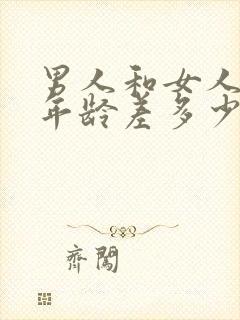 男人和女人
年龄差多少
齐闯